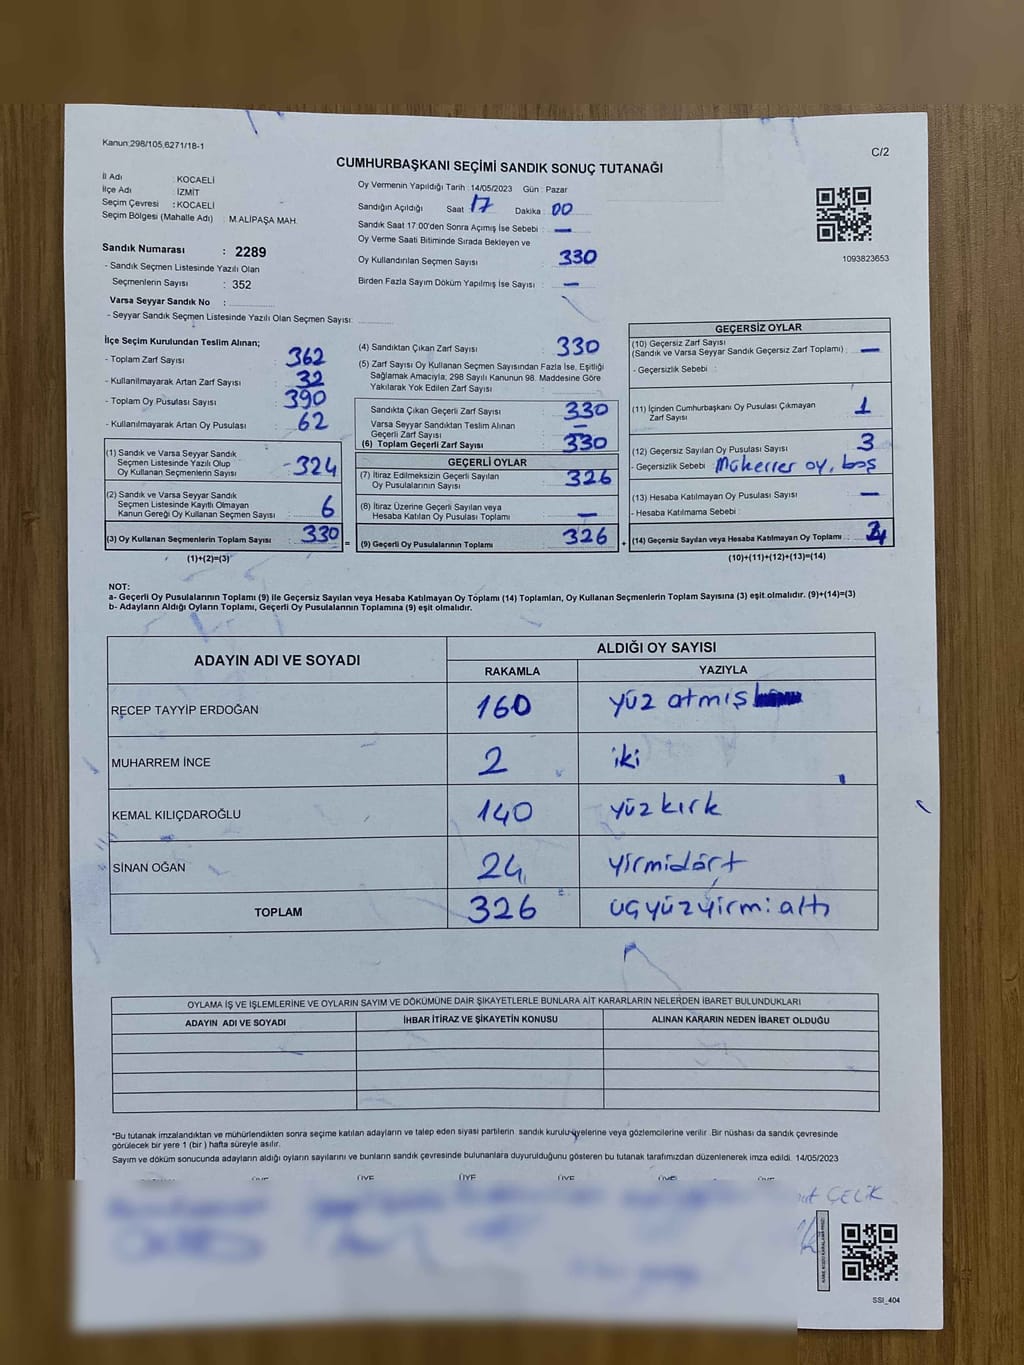 Kanun:298/105,6271/18-1
C/2
CUMHURBAŞKANI SEÇİMİ SANDIK SONUÇ TUTANAĞI
İl Adı : KOCAELİ
İlçe Adı : İZMİT
Seçim Çevresi : KOCAELİ
Seçim Bölgesi (Mahalle Adı) : M.ALİPAŞA MAH.
Sandık Numarası : 2289
- Sandık Seçmen Listesinde Yazılı Olan
Seçmenlerin Sayısı : 352
Varsa Seyyar Sandık No :
- Seyyar Sandık Seçmen Listesinde Yazılı Olan Seçmen Sayısı:
Oy Vermenin Yapıldığı Tarih : 14/05/2023 Gün : Pazar
Sandığın Açıldığı Saat : 17 Dakika : 00
Sandık Saat 17:00'den Sonra Açımış İse Sebebi : —
Oy Verme Saati Bitiminde Sırada Bekleyen ve
Oy Kullandırılan Seçmen Sayısı : 330
Birden Fazla Sayım Döküm Yapılmış İse Sayısı : —
1093823653
İlçe Seçim Kurulundan Teslim Alınan;
- Toplam Zarf Sayısı : 362
- Kullanılmayarak Artan Zarf Sayısı : 32
- Toplam Oy Pusulası Sayısı : 390
- Kullanılmayarak Artan Oy Pusulası : 62
(1) Sandık ve Varsa Seyyar Sandık
Seçmen Listesinde Yazılı Olup
Oy Kullanan Seçmenlerin Sayısı : 324
(2) Sandık ve Varsa Seyyar Sandık
Seçmen Listesinde Kayıtlı Olmayan
Kanun Gereği Oy Kullanan Seçmen Sayısı : 6
(3) Oy Kullanan Seçmenlerin Toplam Sayısı : 330
(1)+(2)=(3)
(4) Sandıktan Çıkan Zarf Sayısı : 330
(5) Zarf Sayısı Oy Kullanan Seçmen Sayısından Fazla İse, Eşitliği
Sağlamak Amacıyla; 298 Sayılı Kanunun 98. Maddesine Göre
Yakılarak Yok Edilen Zarf Sayısı :
Sandıkta Çıkan Geçerli Zarf Sayısı : 330
Varsa Seyyar Sandıktan Teslim Alınan
Geçerli Zarf Sayısı : —
(6) Toplam Geçerli Zarf Sayısı : 330
GEÇERLİ OYLAR
(7) İtiraz Edilmeksizin Geçerli Sayılan
Oy Pusulalarının Sayısı : 326
(8) İtiraz Üzerine Geçerli Sayılan veya
Hesaba Katılan Oy Pusulası Toplamı : —
= (9) Geçerli Oy Pusulalarının Toplamı : 326
GEÇERSİZ OYLAR
(10) Geçersiz Zarf Sayısı
(Sandık ve Varsa Seyyar Sandık Geçersiz Zarf Toplamı) : —
- Geçersizlik Sebebi :
(11) İçinden Cumhurbaşkanı Oy Pusulası Çıkmayan
Zarf Sayısı : 1
(12) Geçersiz Sayılan Oy Pusulası Sayısı : 3
- Geçersizlik Sebebi : Mükerrer oy, boş
(13) Hesaba Katılmayan Oy Pusulası Sayısı : —
- Hesaba Katılmama Sebebi :
+ (14) Geçersiz Sayılan veya Hesaba Katılmayan Oy Toplamı : 4
(10)+(11)+(12)+(13)=(14)
NOT:
a- Geçerli Oy Pusulalarının Toplamı (9) ile Geçersiz Sayılan veya Hesaba Katılmayan Oy Toplamı (14) Toplamları, Oy Kullanan Seçmenlerin Toplam Sayısına (3) eşit olmalıdır. (9)+(14)=(3)
b- Adayların Aldığı Oyların Toplamı, Geçerli Oy Pusulalarının Toplamına (9) eşit olmalıdır.
ADAYIN ADI VE SOYADI
ALDIĞI OY SAYISI
RAKAMLA YAZIYLA
RECEP TAYYİP ERDOĞAN 160 yüz atmış
MUHARREM İNCE 2 iki
KEMAL KILIÇDAROĞLU 140 yüz kırk
SİNAN OĞAN 24 yirmidört
TOPLAM 326 üçyüzyirmialtı
OYLAMA İŞ VE İŞLEMLERİNE VE OYLARIN SAYIM VE DÖKÜMÜNE DAİR ŞİKAYETLERLE BUNLARA AİT KARARLARIN NELERDEN İBARET BULUNDUKLARI
ADAYIN ADI VE SOYADI İHBAR İTİRAZ VE ŞİKAYETİN KONUSU ALINAN KARARIN NEDEN İBARET OLDUĞU
*Bu tutanak imzalandıktan ve mühürlendikten sonra seçime katılan adayların ve talep eden siyasi partilerin sandık kurulu üyelerine veya gözlemcilerine verilir. Bir nüshası da sandık çevresinde
görülecek bir yere 1 (bir ) hafta süreyle asılır.
Sayım ve döküm sonucunda adayların aldığı oyların sayılarını ve bunların sandık çevresinde bulunanlara duyurulduğunu gösteren bu tutanak tarafımızdan düzenlenerek imza edildi. 14/05/2023
ÜYE ÜYE ÜYE ÜYE ÜYE ÜYE
ÇELİK
SSI_404